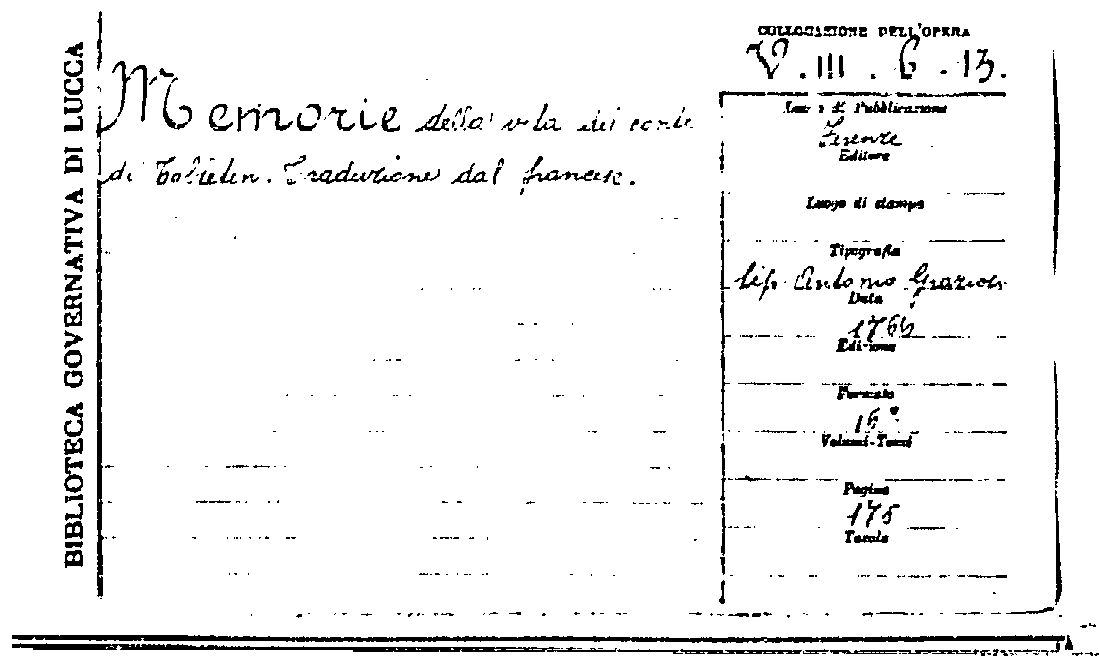 BIBLIOTECA GOVERNATIVA DI LUCCA
Memorie della vita del conte
di Traduzione dal francese.
COLLOCAZIONE DELL'OPERA
V. III. 6. 13.
Luogo di Pubblicazione
Firenze
Editore
Luogo di stampa
Tipografia
tip. Antonio Graziosi
Data
Edizione
Formato
16°
Volumi-Tomi
Pagine
175
Tavole